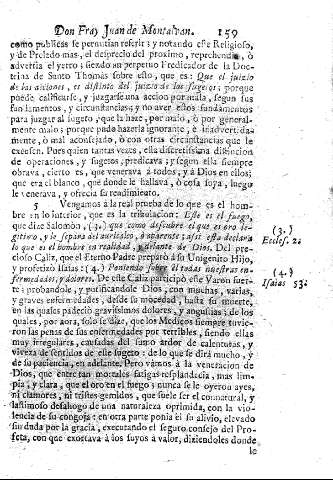 Don Fray Juan de Montalvan. 159
como publicas se permitian referir; y notando este Religioso,
y de Preleado mas, el desprecio del proximo, reprehendia, ò
advertia el yerro; siendo su perpetuo Predicador de la Doc-
trina de Santo Thomàs sobre esto, que es: Que el juizio
de las acciones, es distinto del juizio de los sugetos; porque
puede calificarse, y juzgarse una accion por mala, segun sus
fundamentos, y circunstancias; y no aver estos fundamentos
para juzgar al sugeto, que la haze, por malo, ò por general-
mente malo; porque pudo hazerla ignorante, è inadvertida-
mente, ò mal aconsejado, ò con otras circunstancias que le
excusen. Pues quien tantas vezes, esta discretissima distincion
de operaciones, y sugetos, predicava; y segun ella siempre
obrava, cierto es, que venerava à todos, y à Dios en ellos;
que era el blanco, que donde le hallava, ò cosa suya, luego
le venerava, y ofrecia su rendimiento.
5 Vengamos à la real prueba de lo que es el hom-
bre en lo interior, que es la tribulacion: Este es el fuego,
que dize Salomòn, (3.) que como descubre el que es oro le-
gitimo, y le separa del auricalco, ò aparente: assi esta declara
lo que es el hombre en realidad, y delante de Dios. Del pre-
cioso Caliz, que el Eterno Padre preparò à su Unigenito Hijo,
y profetizò Isaias: (4.) Poniendo sobre èl todas nuestras en-
fermedades, y dolores. De este Caliz participò este Varon fuer-
te: probandole, y purificandole Dios, con muchas, varias,
y graves enfermedades, desde su mocedad, hasta su muerte,
en las quales padeciò gravissimos dolores, y angustias; de los
quales, por aora, solo se dize, que los Medicos siempre tuvie-
ron las penas de sus enfermedades por terribles, siendo ellas
muy irregulares, causadas del sumo ardor de calenturas, y
viveza de sentidos de este sugeto: de lo que se dirà mucho, y
de su paciencia, en adelante. Pero vamos à la veneracion de
Dios, que entre tan mortales fatigas resplandecia, mas lim-
pia, y clara, que el oro en el fuego; nunca se le oyeron ayes,
ni clamores, ni tristes gemidos, que suele ser el connatural, y
lastimoso desahogo de una naturaleza oprimida, con la vio-
lencia de su congoja: en otra parte ponia èl su alivio, elevado
sin duda por la gracia, executando el seguro consejo del Pro-
feta, con que exortava à los suyos à valor, diziendoles donde
le
(3.)
Eccles. 2.
(4.)
Isaias 53.